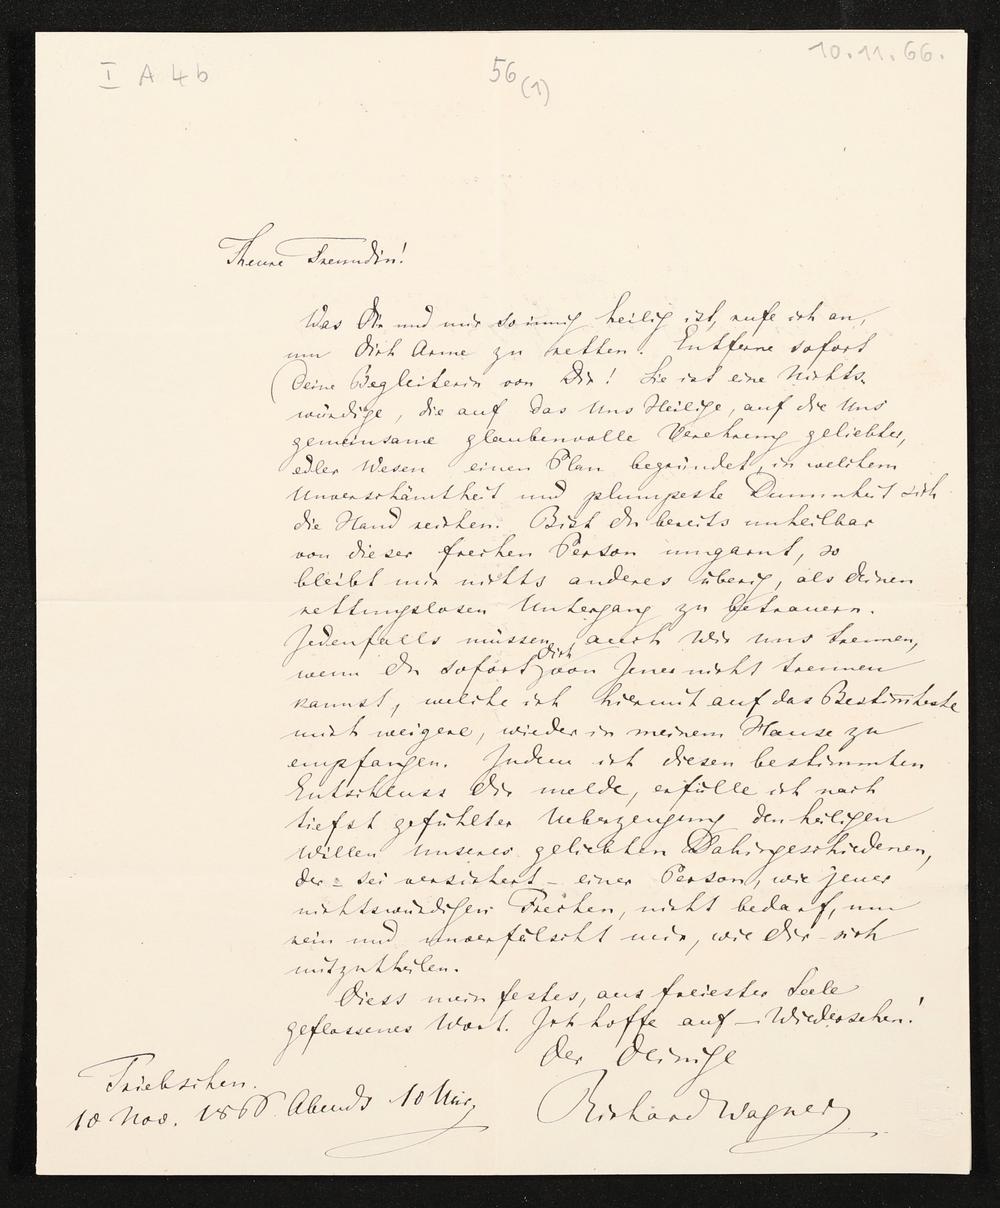 I A 4b
56 (1)
10.11.66.
Theure Freundin!
Was Dir und mir so innig heilig ist, rufe ich an,
um Dich Arme zu retten. Entferne sofort
Deine Begleiterin von Dir! Sie ist eine Nichts-
würdige, die auf das Uns Heilige, auf die Uns
gemeinsame glaubenvolle Verehrung geliebter,
edler Wesen einen Plan begründet, in welchem
Unverschämtheit und plumpeste Dummheit sich
die Hand reichen. Bist du bereits unheilbar
von dieser frechen Person umgarnt, so
bleibt mir nichts anderes überig, als deinen
rettungslosen Untergang zu betrauern.
Jedenfalls müssen auch Wir uns trennen,
wenn Du sofort Dich von Jener nicht trennen
kannst, welche ich hiermit auf das Bestim̅teste
mich weigere, wieder in meinem Hause zu
empfangen. Indem ich diesen bestimmten
Entschluss Dir melde, erfülle ich nach
tiefst gefühlter Ueberzeugung den heiligen
Willen unseres geliebten Dahingeschiedenen,
der – sei versichert – einer Person, wie jener
nichtswürdigen Frechen, nicht bedarf, um
rein und unverfälscht mir, wie Dir sich
mitzutheilen.
Diess mein festes, aus freiester Seele
geflossenes Wort. Ich hoffe auf – Wiedersehen!
Der Deinige
Richard Wagner
Triebschen.
10 Nov. 1866 Abends 10 Uhr